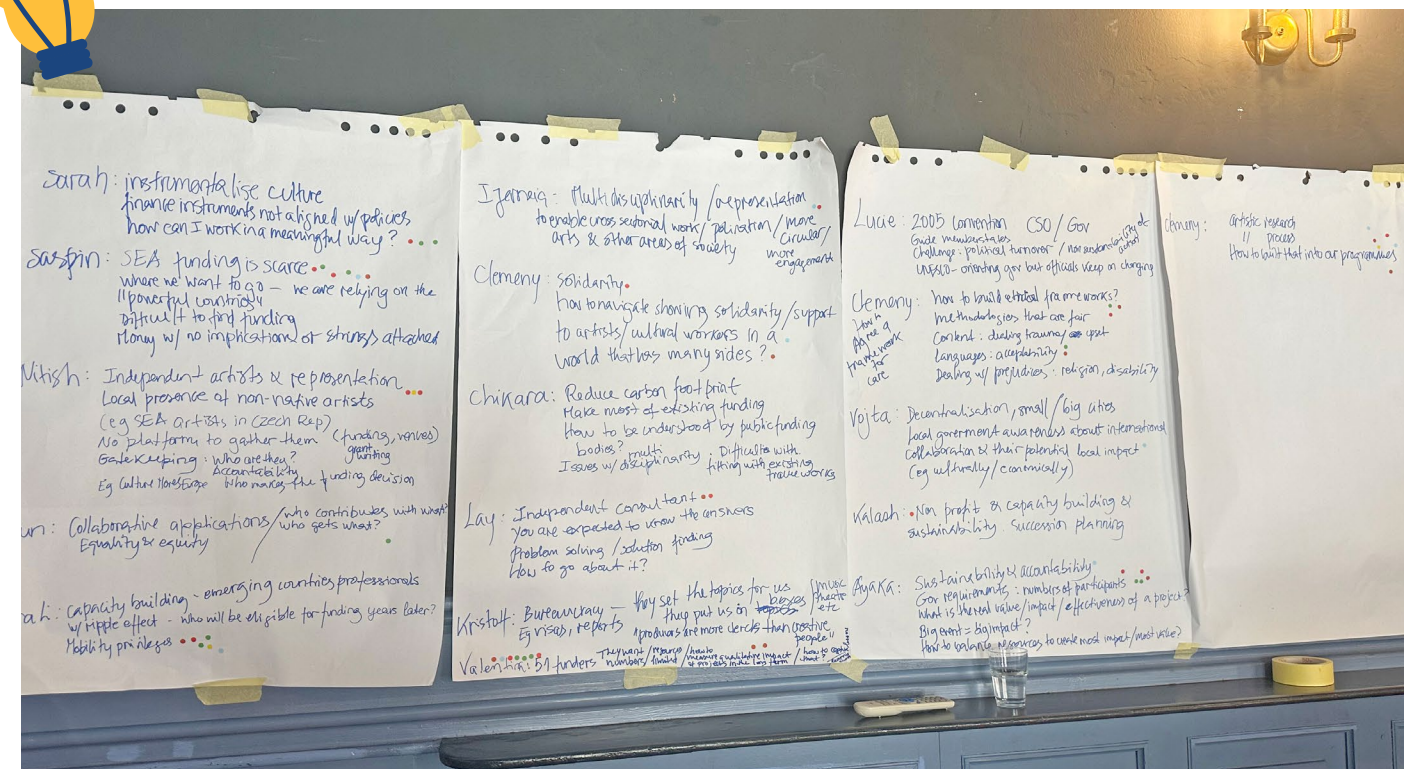 Sarah: instrumentalise culture
finance instruments not aligned w/ policies
how can I work in a meaningful way?
SEA funding is scarce
where we want to go – we are relying on the
"powerful countries"
Difficult to find funding
Money w/ no implications or strings attached
Nitish: Independent artists & representation
Local presence of non-native artists
(eg SEA artists in Czech Rep)
No platform to gather them (funding, venues)
Gatekeeping: Who are they? grant writing
Accountability
Eg Culture Moves Europe Who makes the funding decision
Collaborative applications / who contributes with what?
who gets what?
Equality & equity
Capacity building - emerging countries professionals
w/ ripple effect - who will be eligible for funding years later?
Mobility privileges
Multidisciplinarity / representation
to enable cross sectorial work / / more
Circular /
arts & other areas of society
more
engagement
Clemeny: Solidarity
how to navigate showing solidarity / support
to artists / cultural workers in a
world that has many sides?
Chikara: Reduce carbon footprint
Make most of existing funding
How to be understood by public funding
bodies?
Issues w/ multi disciplinarity : Difficulties with
fitting with existing
frameworks
Lay: Independent consultant
You are expected to know the answers
Problem solving / solution finding
How to go about it?
Kristof: Bureaucracy – they set the topics for us
they put us in boxes / music
theatre
etc
Eg visas, reports
"producers are more clerks than creative
people"
funders They want numbers / / how to
measure qualitative impact
of projects in the long term / how to
what?
Lucie: 2005 Convention CSO / Gov
Guide memberstates
Challenge: political turnover / non sustainability of
UNESCO - orienting gov but officials keep on changing
Clemeny: how to build ethical frameworks?
methodologies that are fair
Content: dealing trauma / upset
Languages: acceptability
Dealing w/ prejudices: religion, disability
How to
Agree a
framework
for
care
Vojta: Decentralisation, small / big cities
Local goverment awareness about international
collaboration & their potential local impact
(eg culturally / economically)
Kalash: Non profit & capacity building &
sustainability. Succession planning
Ayaka: Sustainability & accountability
Gov requirements: numbers of participants
What is the real value / impact / effectiveness of a project?
Big event = big impact?
How to balance resources to create most impact / most value?
Clemeny: artistic research
" process
How to built that into our programmes